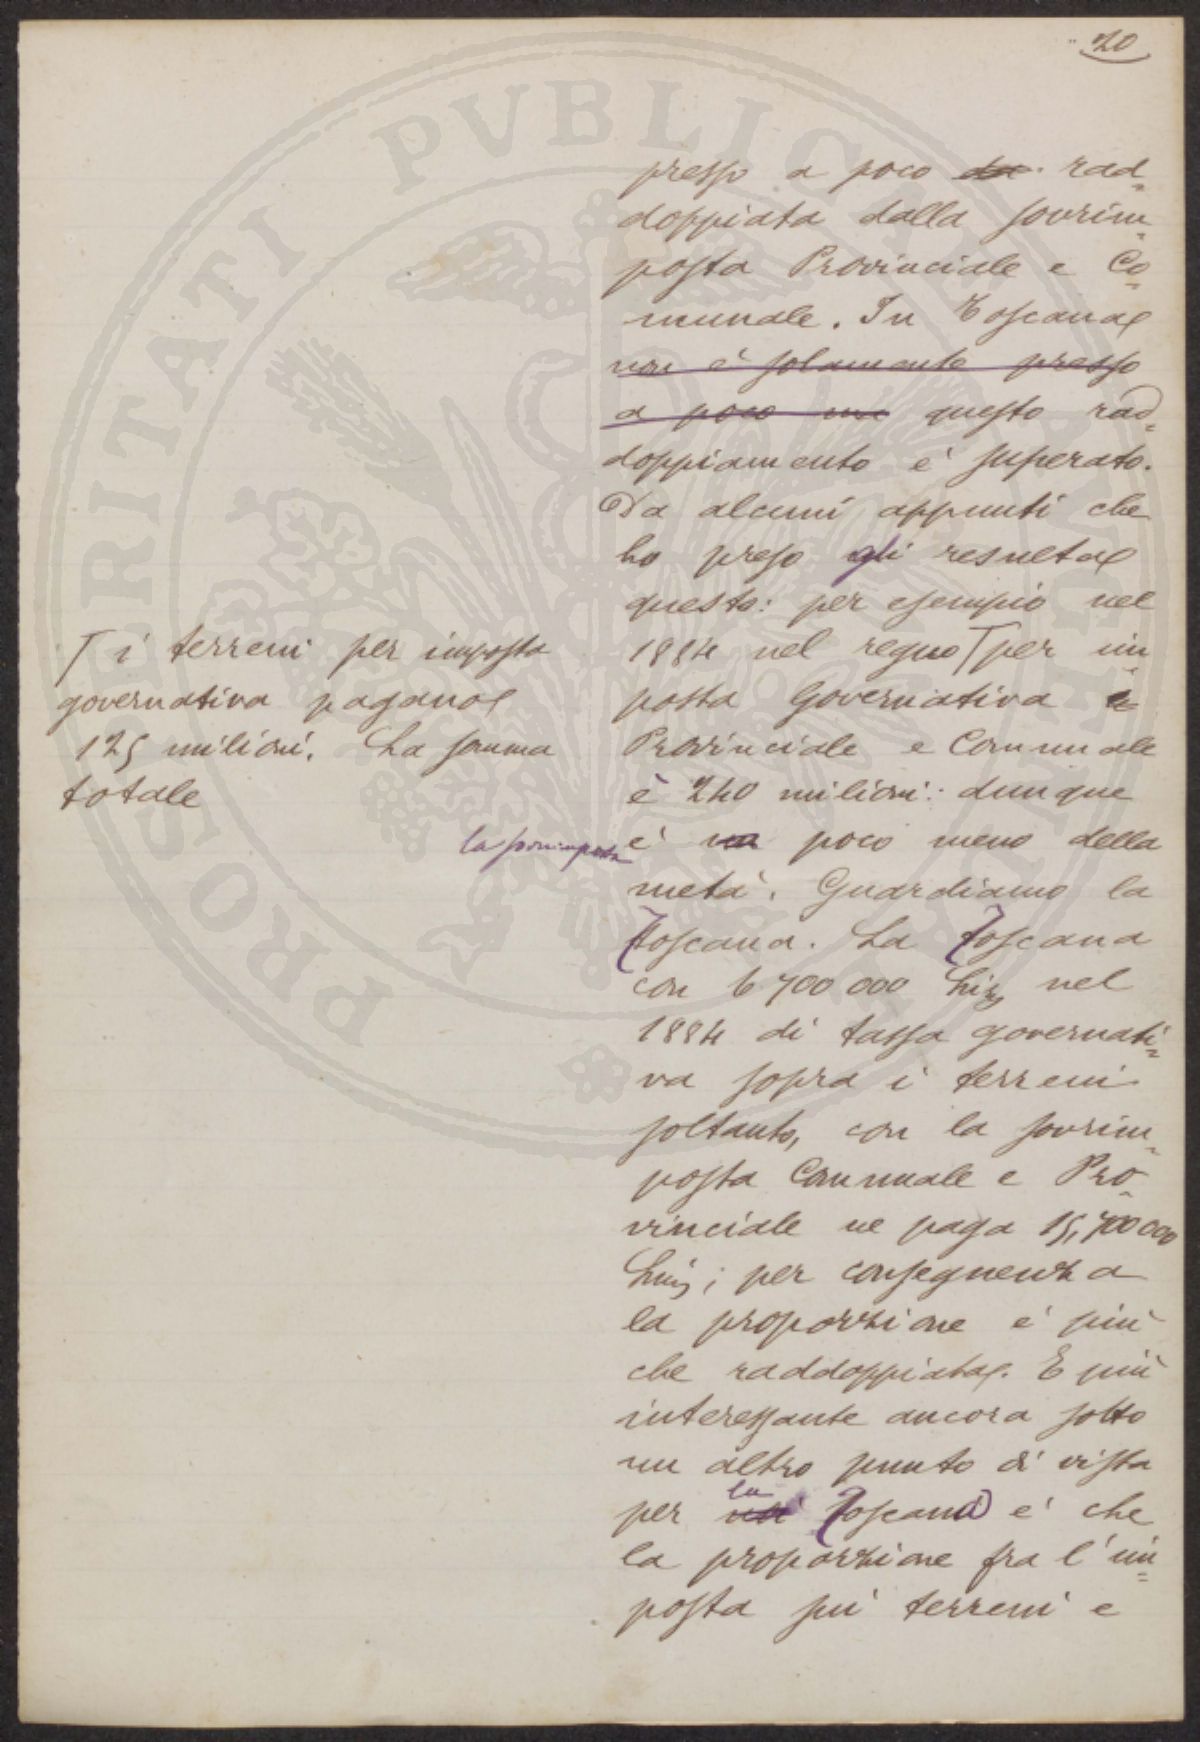 20
presso a poco da rad-
doppiata dalla sovrim-
posta Provinciale e Co-
munale. In Toscana
non è solamente presso
a poco un questo rad-
doppiamento è superato.
Da alcuni appunti che
ho preso gli resulta
questo: per esempio nel
1884 nel regno per im-
posta Governativa e
Provinciale e Comunale
è 240 milioni: dunque
è poco meno della
metà. Guardiamo la
Toscana. La Toscana
con 6 700 000 Lire nel
1884 di tassa governati-
va sopra i terreni
soltanto, con la sovrim-
posta Comunale e Pro-
vinciale ne paga 15,700 000
Lire; per conseguenza
la proporzione è più
che raddoppiata. E più
interessante ancora sotto
un altro punto di vista
per la Toscana è che
la proporzione fra l'im-
posta sui terreni e
i terreni per imposta
governativa pagano
125 milioni. La somma
totale
la sovrimposta
PROSPERITATI PVBLICAE AVGENDAE